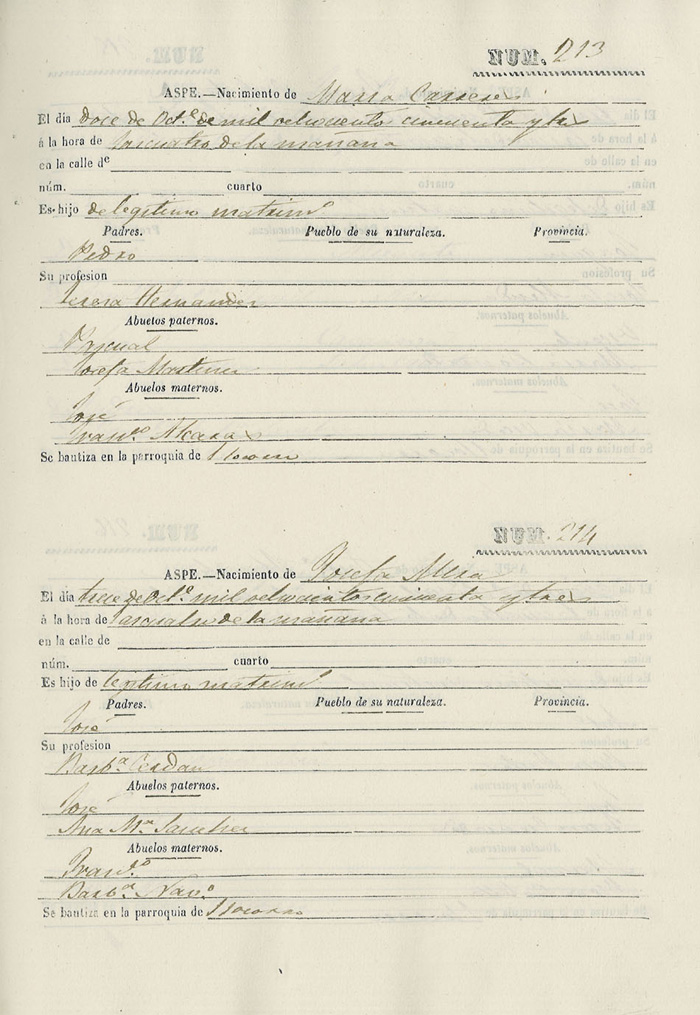 NUM. 213
ASPE.—Nacimiento de Maria
El dia doce de Oct.e de mil ochocientos cincuenta y tres
á la hora de las cuatro de la mañana
en la calle de
núm. cuarto
Es hijo de legitimo matrim.o
Padres. Pueblo de su naturaleza. Provincia.
Pedro
Su profesion
Teresa Hernandez
Abuelos paternos.
Pascual
Josefa Martinez
Abuelos maternos.
José
Fran.ca Alcaraz
Se bautiza en la parroquia de
NUM. 214
ASPE.—Nacimiento de Josefa Mira
El dia trece de Oct.e mil ochocientos cincuenta y tres
á la hora de las cuatro de la mañana
en la calle de
núm. cuarto
Es hijo de legitimo matrim.o
Padres. Pueblo de su naturaleza. Provincia.
José
Su profesion
Barb.a Cerdan
Abuelos paternos.
José
Ana M.a Sanchez
Abuelos maternos.
Fran.co
Barb.a Nav.o
Se bautiza en la parroquia de Socorro